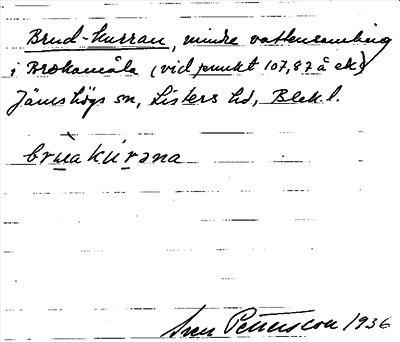 Brud-Kurran, mindre vattensamling
i Brokamåla (vid punkt 107,87 å ek)
Jämshögs sn, Listers hd, Blekl.
brùakúrəna
Sven Pettersson 1936